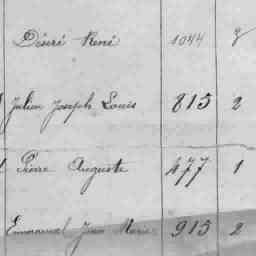 Désiré René 1044 8
Julien Joseph Louis 815 2
Pierre Auguste 477 1
Emmanuel Jean Marie 915 2